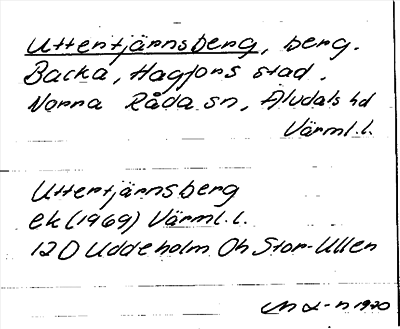 Uttertjärnsberg, berg.
Backa, Hagfors stad.
Norra Råda sn, Älvdals hd
Värml.l.
Uttertjärnsberg
ek (1969) Värml.l.
12D Uddeholm Oh Stor-Ullen
1970